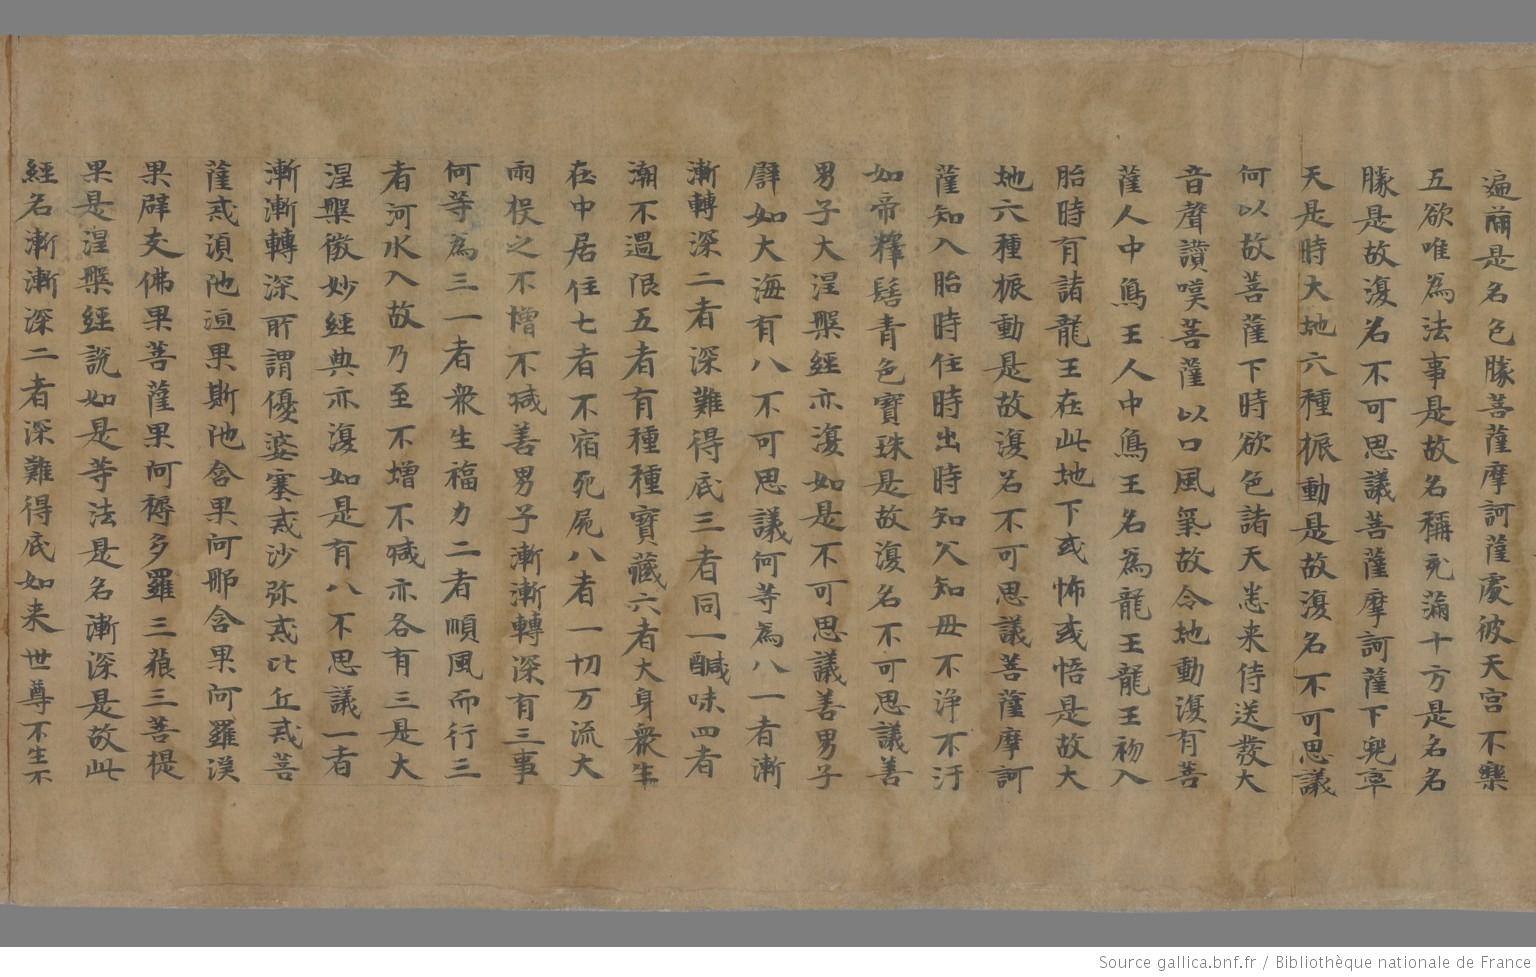 遍爾是名色勝菩薩摩訶薩處彼天宮不樂
五欲唯為法事是故名稱充滿十方是名名
勝是故復名不可思議菩薩摩訶薩下兜率
天是時大地六種振動是故復名不可思議
何以故菩薩下時欲色諸天悉来侍送發大
音聲讚嘆菩薩以口風氣故令地動復有菩
薩人中鳥王人中鳥王名為龍王龍王初入
胎時有諸龍王在此地下或怖或悟是故大
地六種振動是故復名不可思議菩薩摩訶
薩知入胎時住時出時知父知母不淨不汙
如帝釋髻青色寶珠是故復名不可思議善
男子大涅槃經亦復如是不可思議善男子
譬如大海有八不可思議何等為八一者漸
漸轉深二者深難得底三者同一醎味四者
潮不過限五者有種種寶藏六者大身衆生
在中居住七者不宿死屍八者一切万流大
雨投之不增不减善男子漸漸轉深有三事
何等為三一者衆生福力二者順風而行三
者河水入故乃至不增不减亦各有三是大
涅槃微妙經典亦復如是有八不思議一者
漸漸轉深所謂優婆塞戒沙弥戒比丘戒菩
薩戒湏陁洹果斯陁含果阿那含果阿羅漢
果辟支佛果菩薩果阿耨多羅三藐三菩提
果是涅槃經說如是等法是名漸深是故此
經名漸漸深二者深難得底如来世尊不生不
Source gallica.bnf.fr / Bibliothèque nationale de France